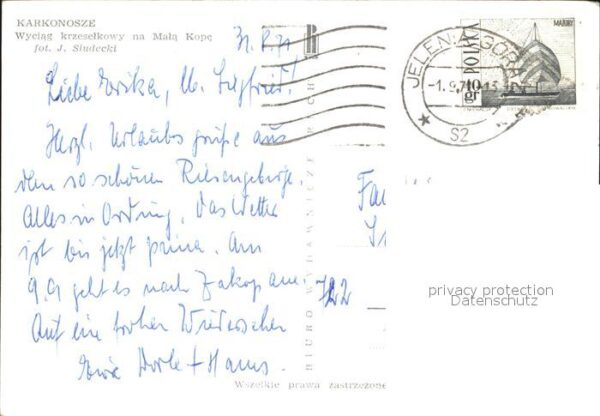 KARKONOSZE
Wyciąg krzesełkowy na Małą Kopę
fot. J. Siudecki
31.8.71
Liebe Erika, lb. Siegfried!
Herzl. Urlaubsgrüße aus
dem so schönen Riesengebirge.
Alles in Ordnung, das Wetter
ist bis jetzt prima. Am
9.9 geht es nach Zakopane.
Auf ein frohes Wiedersehen
Eure Dorle + Hans.
BIURO WYDAWNICZE RUCH
Wszelkie prawa zastrzeżone
JELENIA GÓRA
-1.9.71
52
POLSKA
MAZURY
10 gr
Fa
722
privacy protection
Datenschutz